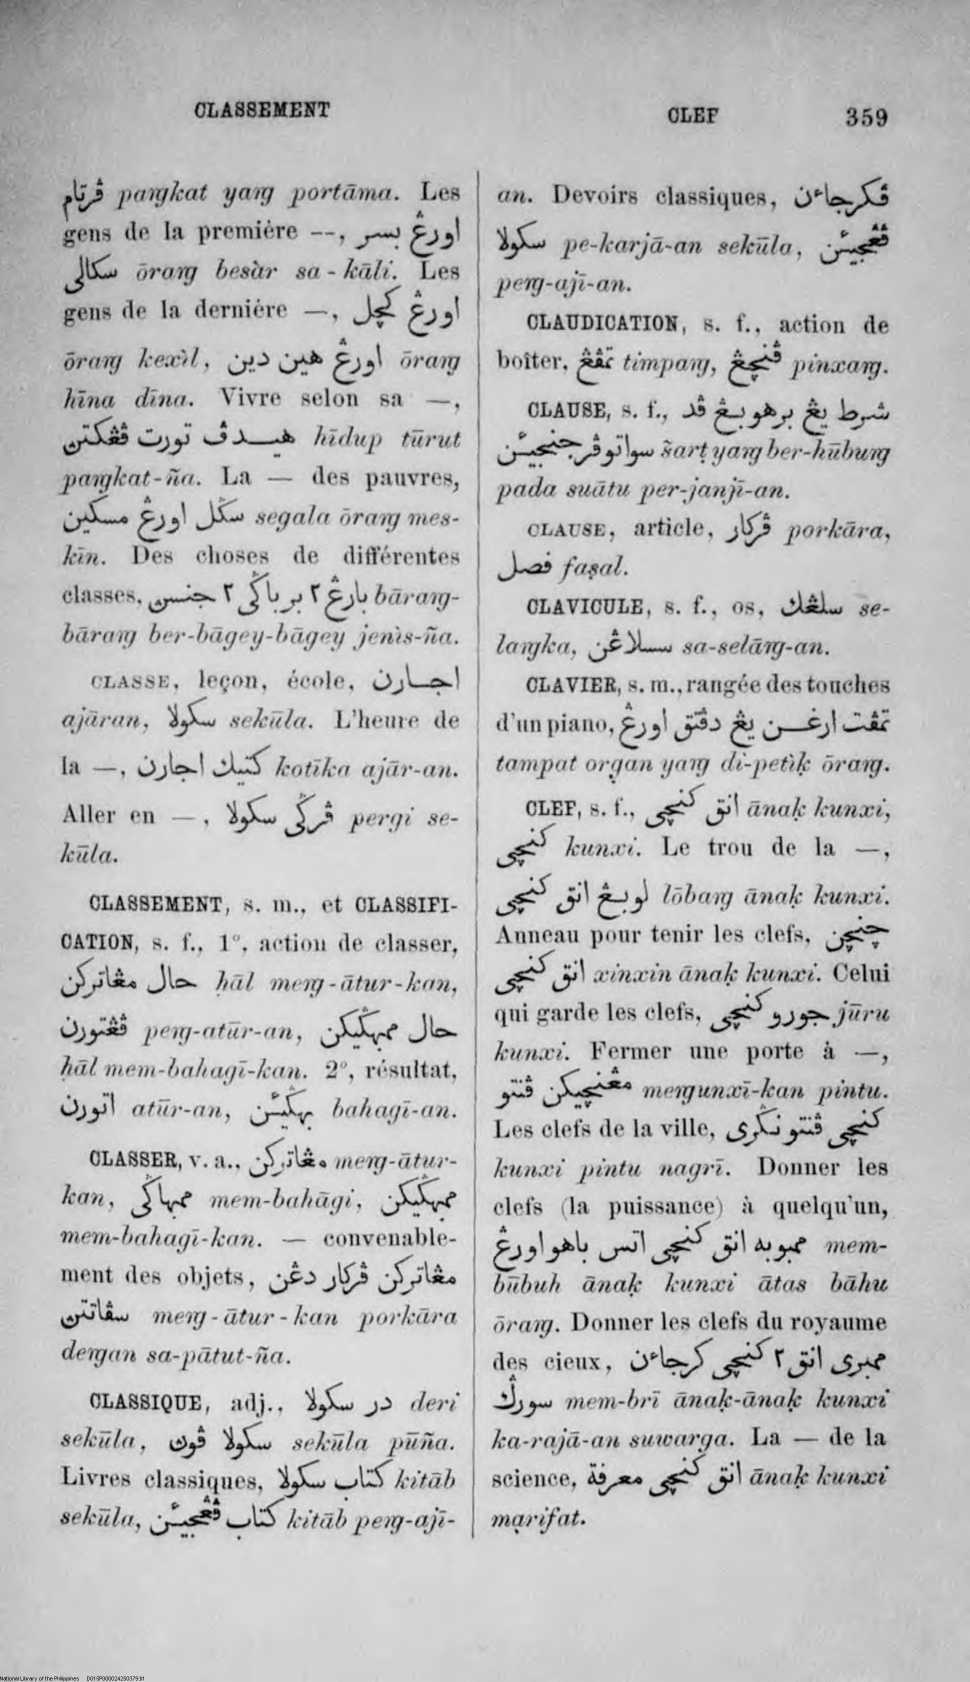 CLASSEMENT
CLEF 359
ڤرتام paṅgkat yaṅg portāma. Les
gens de la première —, اورڠ بسر
سكالى ōraṅg besàr sa-kāli. Les
gens de la dernière —, اورڠ كچل
ōraṅg kexìl, اورڠ هين دين ōraṅg
hīna dīna. Vivre selon sa —,
هيدڤ تورت ڤڠكتن hīdup tūrut
paṅgkat-ña. La — des pauvres,
سڬل اورڠ مسكين segala ōraṅg mes-
kīn. Des choses de différentes
classes, بارڠ ٢ برباڬى ٢ جنسن bāraṅg-
bāraṅg ber-bāgey-bāgey jenìs-ña.
CLASSE, leçon, école, اجارن
ajāran, سكولا sekūla. L'heure de
la —, كتيك اجارن kotīka ajār-an.
Aller en —, ڤرڬى سكولا pergi se-
kūla.
CLASSEMENT, s. m., et CLASSIFI-
CATION, s. f., 1°, action de classer,
حال مڠاتركن ḥāl meṅg-ātur-kan,
ڤڠتورن peṅg-atūr-an, حال ممبهڬيكن
ḥāl mem-bahagī-kan. 2°, résultat,
اتورن atūr-an, بهڬيئن bahagī-an.
CLASSER, v. a., مڠاتركن meṅg-ātur-
kan, ممبهاڬى mem-bahāgi, ممبهڬيكن
mem-bahagī-kan. — convenable-
ment des objets, مڠاتركن ڤركار دڠن
سڤاتتن meṅg-ātur-kan porkāra
deṅgan sa-pātut-ña.
CLASSIQUE, adj., در سكولا deri
sekūla, سكولا ڤون sekūla pūña.
Livres classiques, كتاب سكولا kitāb
sekūla, كتاب ڤڠجيئن kitāb peṅg-ajī-
an. Devoirs classiques, ڤكرجاءن
سكولا pe-karjā-an sekūla, ڤڠجيئن
peṅg-ajī-an.
CLAUDICATION, s. f., action de
boîter, تمڤڠ timpaṅg, ڤنچڠ pinxaṅg.
CLAUSE, s. f., شرط يڠ برهوبڠ ڤد
سواتو ڤرجنجيئن šarṭ yaṅg ber-hūbuṅg
pada suātu per-janjī-an.
CLAUSE, article, ڤركار porkāra,
فصل faṣal.
CLAVICULE, s. f., os, سلڠك se-
laṅgka, سسلاڠن sa-selāṅg-an.
CLAVIER, s. m., rangée des touches
d'un piano, تمڤت ارغن يڠ دڤتق اورڠ
tampat organ yaṅg di-petìḳ ōraṅg.
CLEF, s. f., انق كنچى ānaḳ kunxi,
كنچى kunxi. Le trou de la —,
لوبڠ انق كنچى lōbaṅg ānaḳ kunxi.
Anneau pour tenir les clefs, چنچن
انق كنچى xinxin ānaḳ kunxi. Celui
qui garde les clefs, جورو كنچى jūru
kunxi. Fermer une porte à —,
مڠنچيكن ڤنتو meṅgunxī-kan pintu.
Les clefs de la ville, كنچى ڤنتو نڬرى
kunxi pintu nagrī. Donner les
clefs (la puissance) à quelqu'un,
ممبوبه انق كنچى اتس باهو اورڠ mem-
būbuh ānaḳ kunxi ātas bāhu
ōraṅg. Donner les clefs du royaume
des cieux, ممبرى انق ٢ كنچى كرجاءن
سورڬ mem-brī ānaḳ-ānaḳ kunxi
ka-rajā-an suwarga. La — de la
science, انق كنچى معرفة ānaḳ kunxi
maṛifat.
National Library of the Philippines